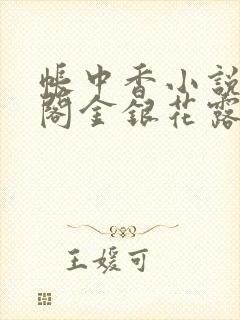 帐中香小説
閣金銀花露
王媛可